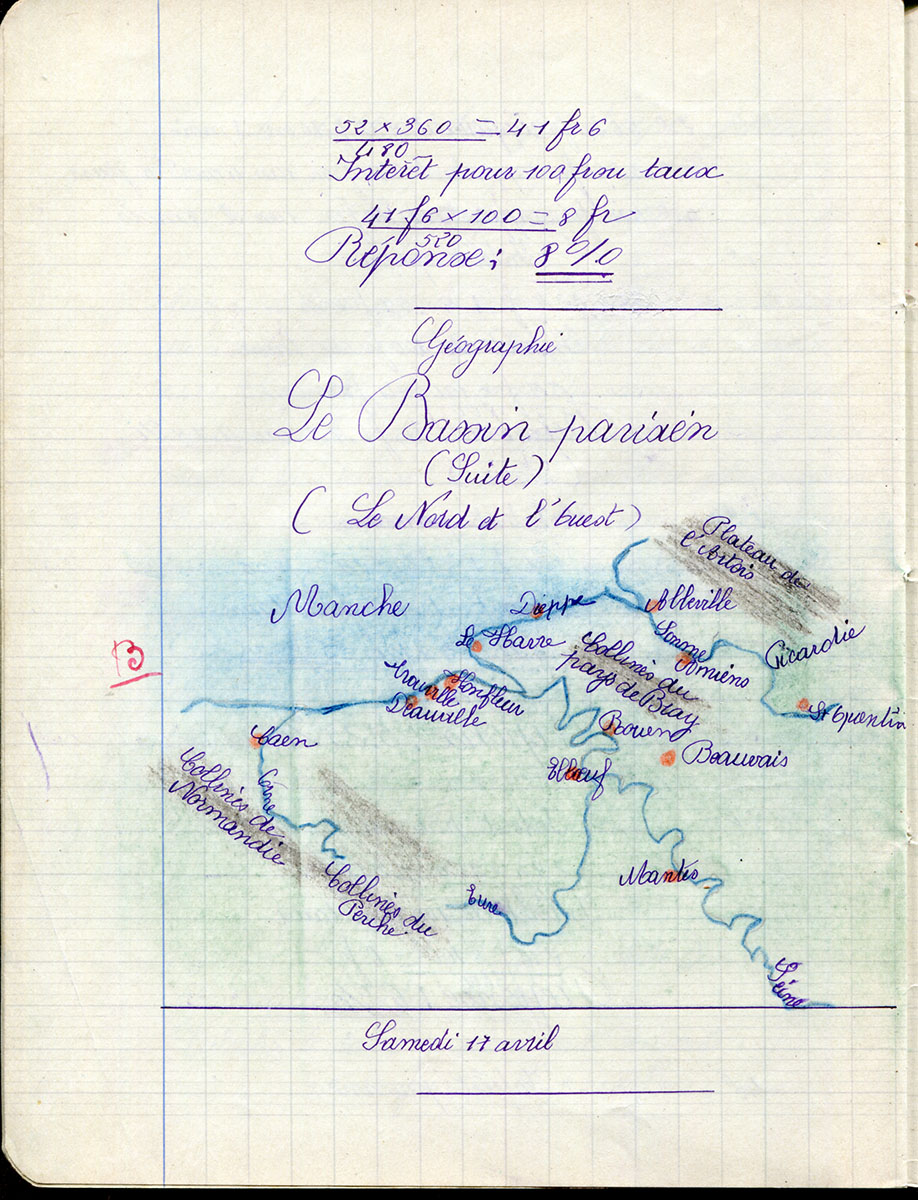 52 × 360 = 41 fr 6
480
Intérêt pour 100 f ou taux
41 f 6 × 100 = 8 fr
520
Réponse : 8 %
Géographie
Le Bassin parisien
(Suite)
( Le Nord et l'Ouest )
Plateau de
l'Artois
Manche
Dieppe
Abbeville
Somme
Le Havre
Picardie
Amiens
Collines du
pays de Bray
Trouville
Honfleur
Deauville
St Quentin
Rouen
Caen
Beauvais
Elbeuf
B
Orne
Collines de
Normandie
Mantes
Collines du
Perche
Eure
Seine
Samedi 17 avril